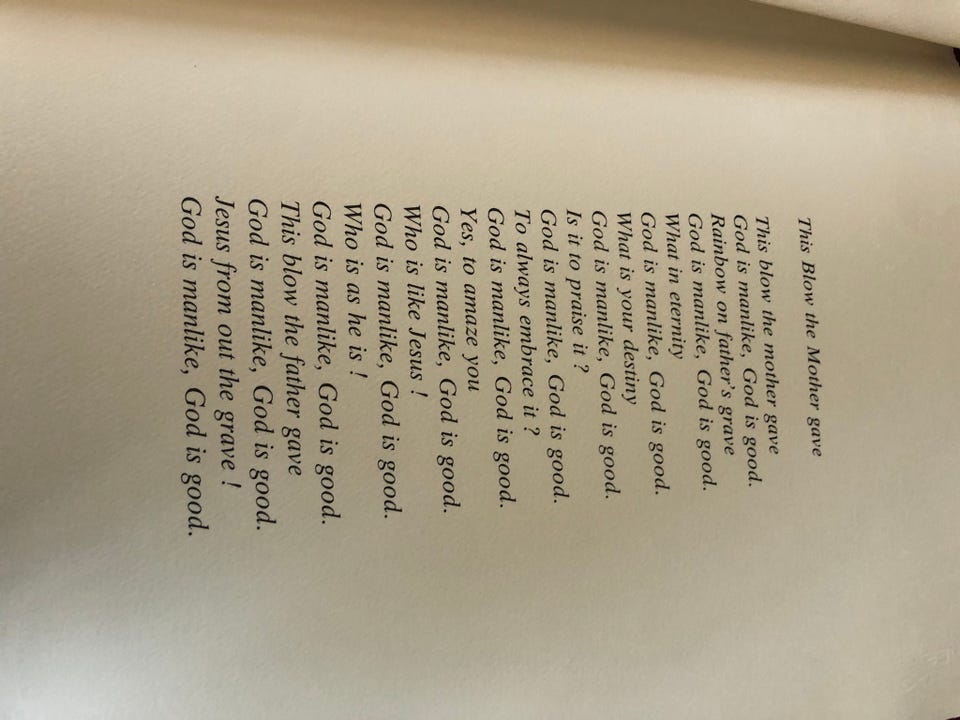 This Blow the Mother gave
This blow the mother gave
God is manlike, God is good.
Rainbow on father's grave
God is manlike, God is good.
What in eternity
God is manlike, God is good.
What is your destiny
God is manlike, God is good.
Is it to praise it ?
God is manlike, God is good.
To always embrace it ?
God is manlike, God is good.
Yes, to amaze you
God is manlike, God is good.
Who is like Jesus !
God is manlike, God is good.
Who is as he is !
God is manlike, God is good.
This blow the father gave
God is manlike, God is good.
Jesus from out the grave !
God is manlike, God is good.